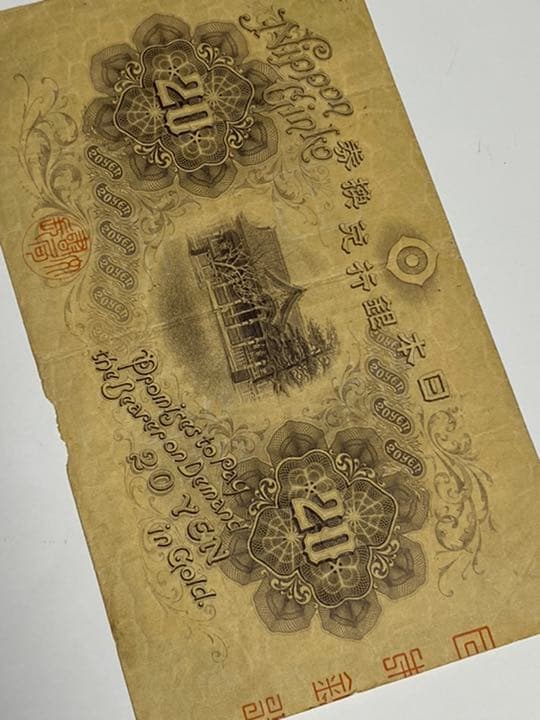 Nippon
Ginko
20
日本銀行兌換券
20YEN
20YEN
20YEN
20YEN
20YEN
20YEN
20YEN
20YEN
20YEN
Promises to pay
the Bearer on Demand
20 YEN
in Gold.
20